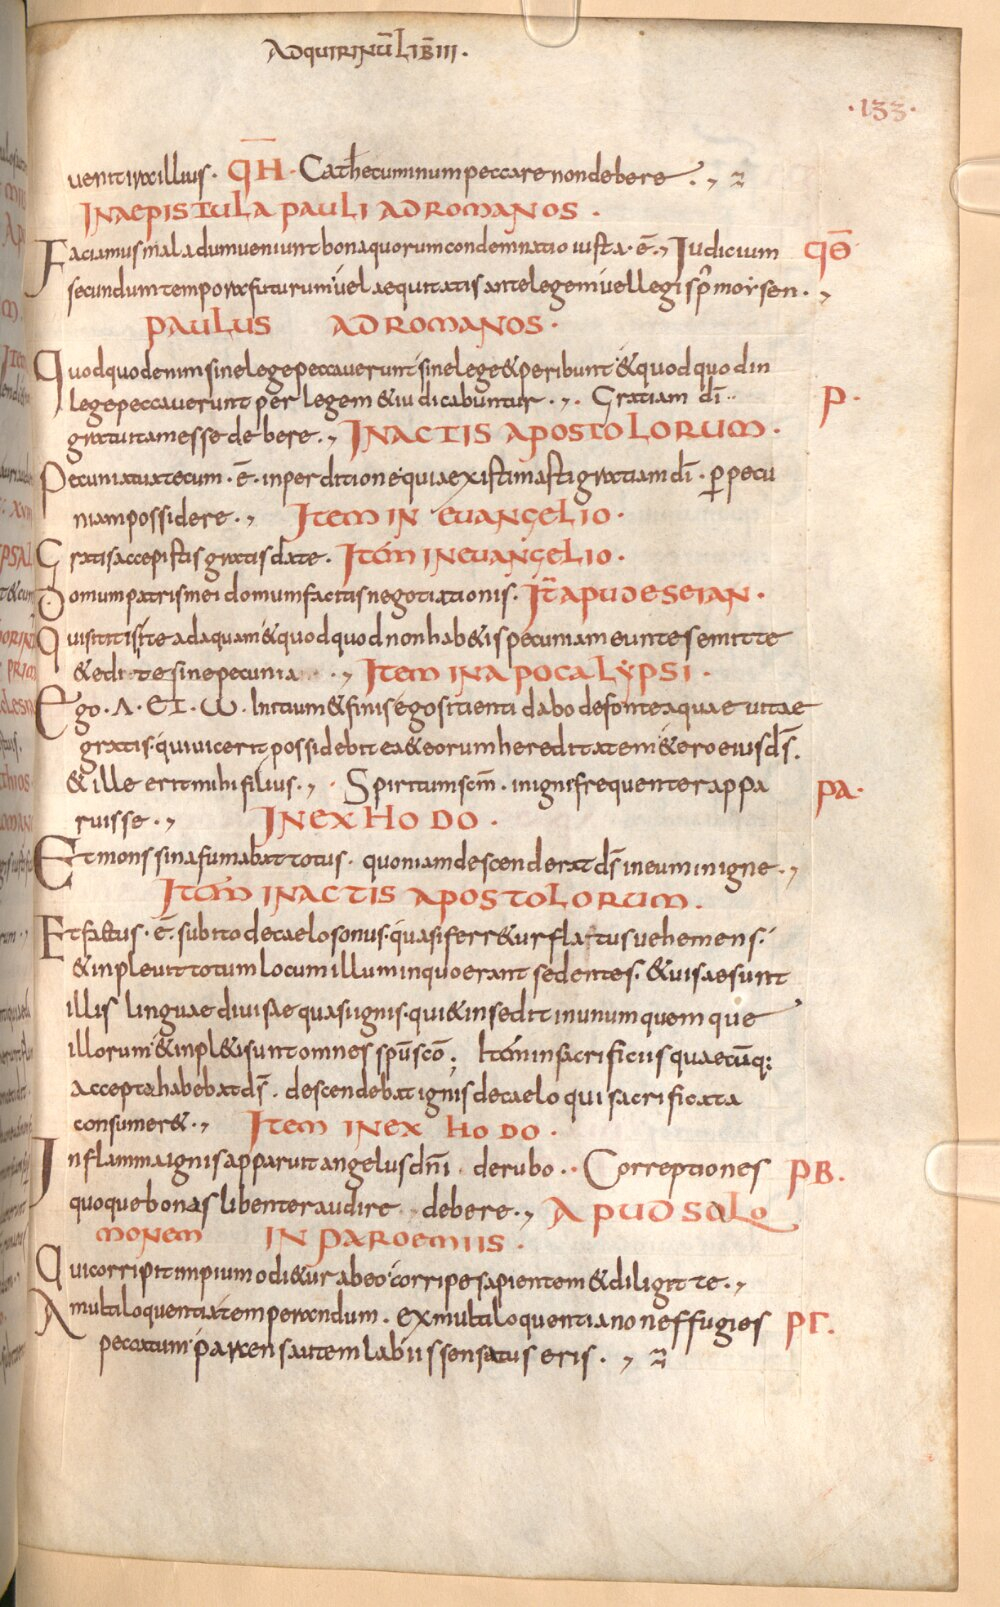 ADQUIRINŪ LIB̄ III.
·133·
uenit ira illius. Q̄H. Cathecuminum peccare non debere.
IN AEPISTULA PAULI AD ROMANOS.
Faciamus mala dum ueniunt bona quorum condemnatio iusta· ē. Iudicium Q̄Θ
secundum tempora futurum uel aequitatis ante legem uel legis post moysen.
PAULUS AD ROMANOS.
Quodquod enim sine lege peccauerunt sine lege & peribunt & quodquod in
lege peccauerunt per legem & iudicabuntur. Gratiam dī P.
gratuitam esse debere. IN ACTIS APOSTOLORUM.
Pecunia tua tecum· ē· in perditione quia existimasti gratiam dī· per pecu
niam possidere. ITEM IN EVANGELIO.
Gratis accepistis gratis date. ITEM IN EUANGELIO.
Domum patris mei domum facitis negotiationis. IT̄ APUD ESEIAN.
Qui sititis ite ad aquam & quodquod non hab&is pecuniam eunte semitte
& edite sine pecunia. ITEM IN APOCALYPSI.
Ego· Λ· ET· ω· Initium & finis ego sitienti dabo de fonte aquae uitae
gratis· qui uicerit possidebit ea & eorum hereditatem & ero eius ds̄.
& ille erit mihi filius. Spiritum scm̄· in igni frequenter appa PA.
ruisse. IN EXHODO.
Et mons sina fumabat totus· quoniam descenderat ds̄ in eum in igne.
ITEM IN ACTIS APOSTOLORUM.
Et factus· ē· subito de caelo sonus· quasi ferr&ur flatus uehemens.
& inpleuit totum locum illum in quo erant sedentes. & uisae sunt
illis linguae diuisae quasi ignis· qui & insedit in unumquemque
illorum & inpl&i sunt omnes spū scō. Item in sacrificiis quaecūq;
accepta habebat ds̄. descendebat ignis de caelo qui sacrificata
consumer&. ITEM IN EXHODO.
In flamma ignis apparuit angelus dn̄i de rubo. Correptiones PB.
quoque bonas libenter audire debere. APUD SALO
MONEM IN PAROEMIIS.
Qui corripit impium odi&ur ab eo· corripe sapientem & diligit te.
A multiloquentia temperandum. ex multiloquentia non effugies PΓ.
peccatum· parcens autem labiis sensatus eris.